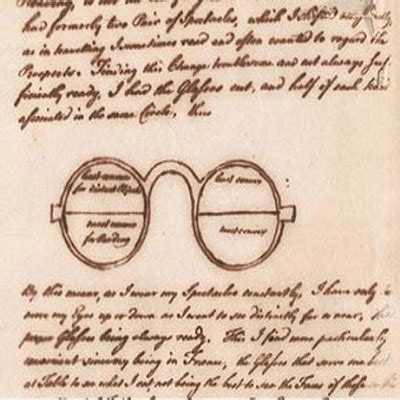 had formerly two Pair of Spectacles, which I shifted occasionally
as in travelling I sometimes read and often wanted to regard the
Prospects. Finding this Change troublesome and not always suf-
ficiently ready, I had the Glasses cut, and half of each kind
associated in the same Circle, thus
least convex
for distant Objects
least convex
most convex
for Reading
most convex
By this means, as I wear my Spectacles constantly, I have only to
move my Eyes up or down as I want to see distinctly far or near, the
proper Glasses being always ready. This I find more particularly
convenient since my being in France, the Glasses that serve me best
at Table to see what I eat not being the best to see the Faces of those